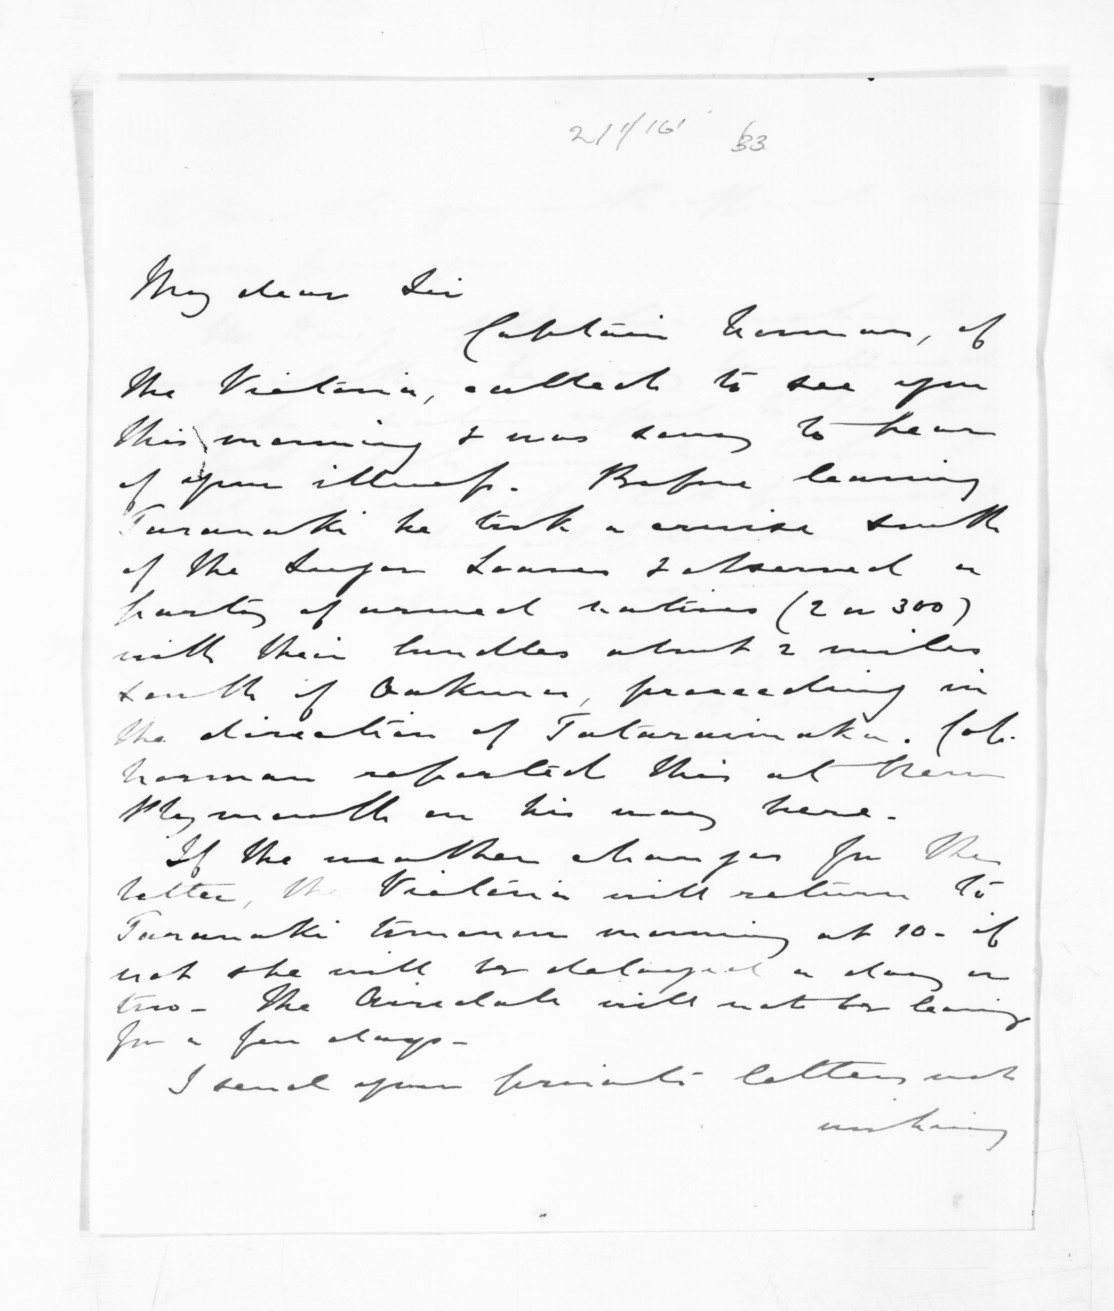 2/1/161 63
My dear Sir
Captain Norman, of
the Victoria, called to see you
this morning & was sorry to hear
of your illness. Before leaving
Taranaki he took a cruise south
of the Sugar Loaves & observed a
party of armed natives (2 or 300)
with their bundles about 2 miles
south of Oakura, proceeding in
the direction of Tataraimaka. Capt.
Norman reported this at New
Plymouth on his way here.
If the weather changes for the
better, the Victoria will return to
Taranaki tomorrow morning at 10 - if
not she will be delayed a day or
two - The Airedale will not be leaving
for a few days -
I send your private letters not
wishing